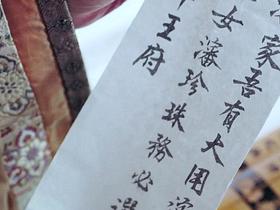 家吾有大用
女瀋珍珠務必
王府